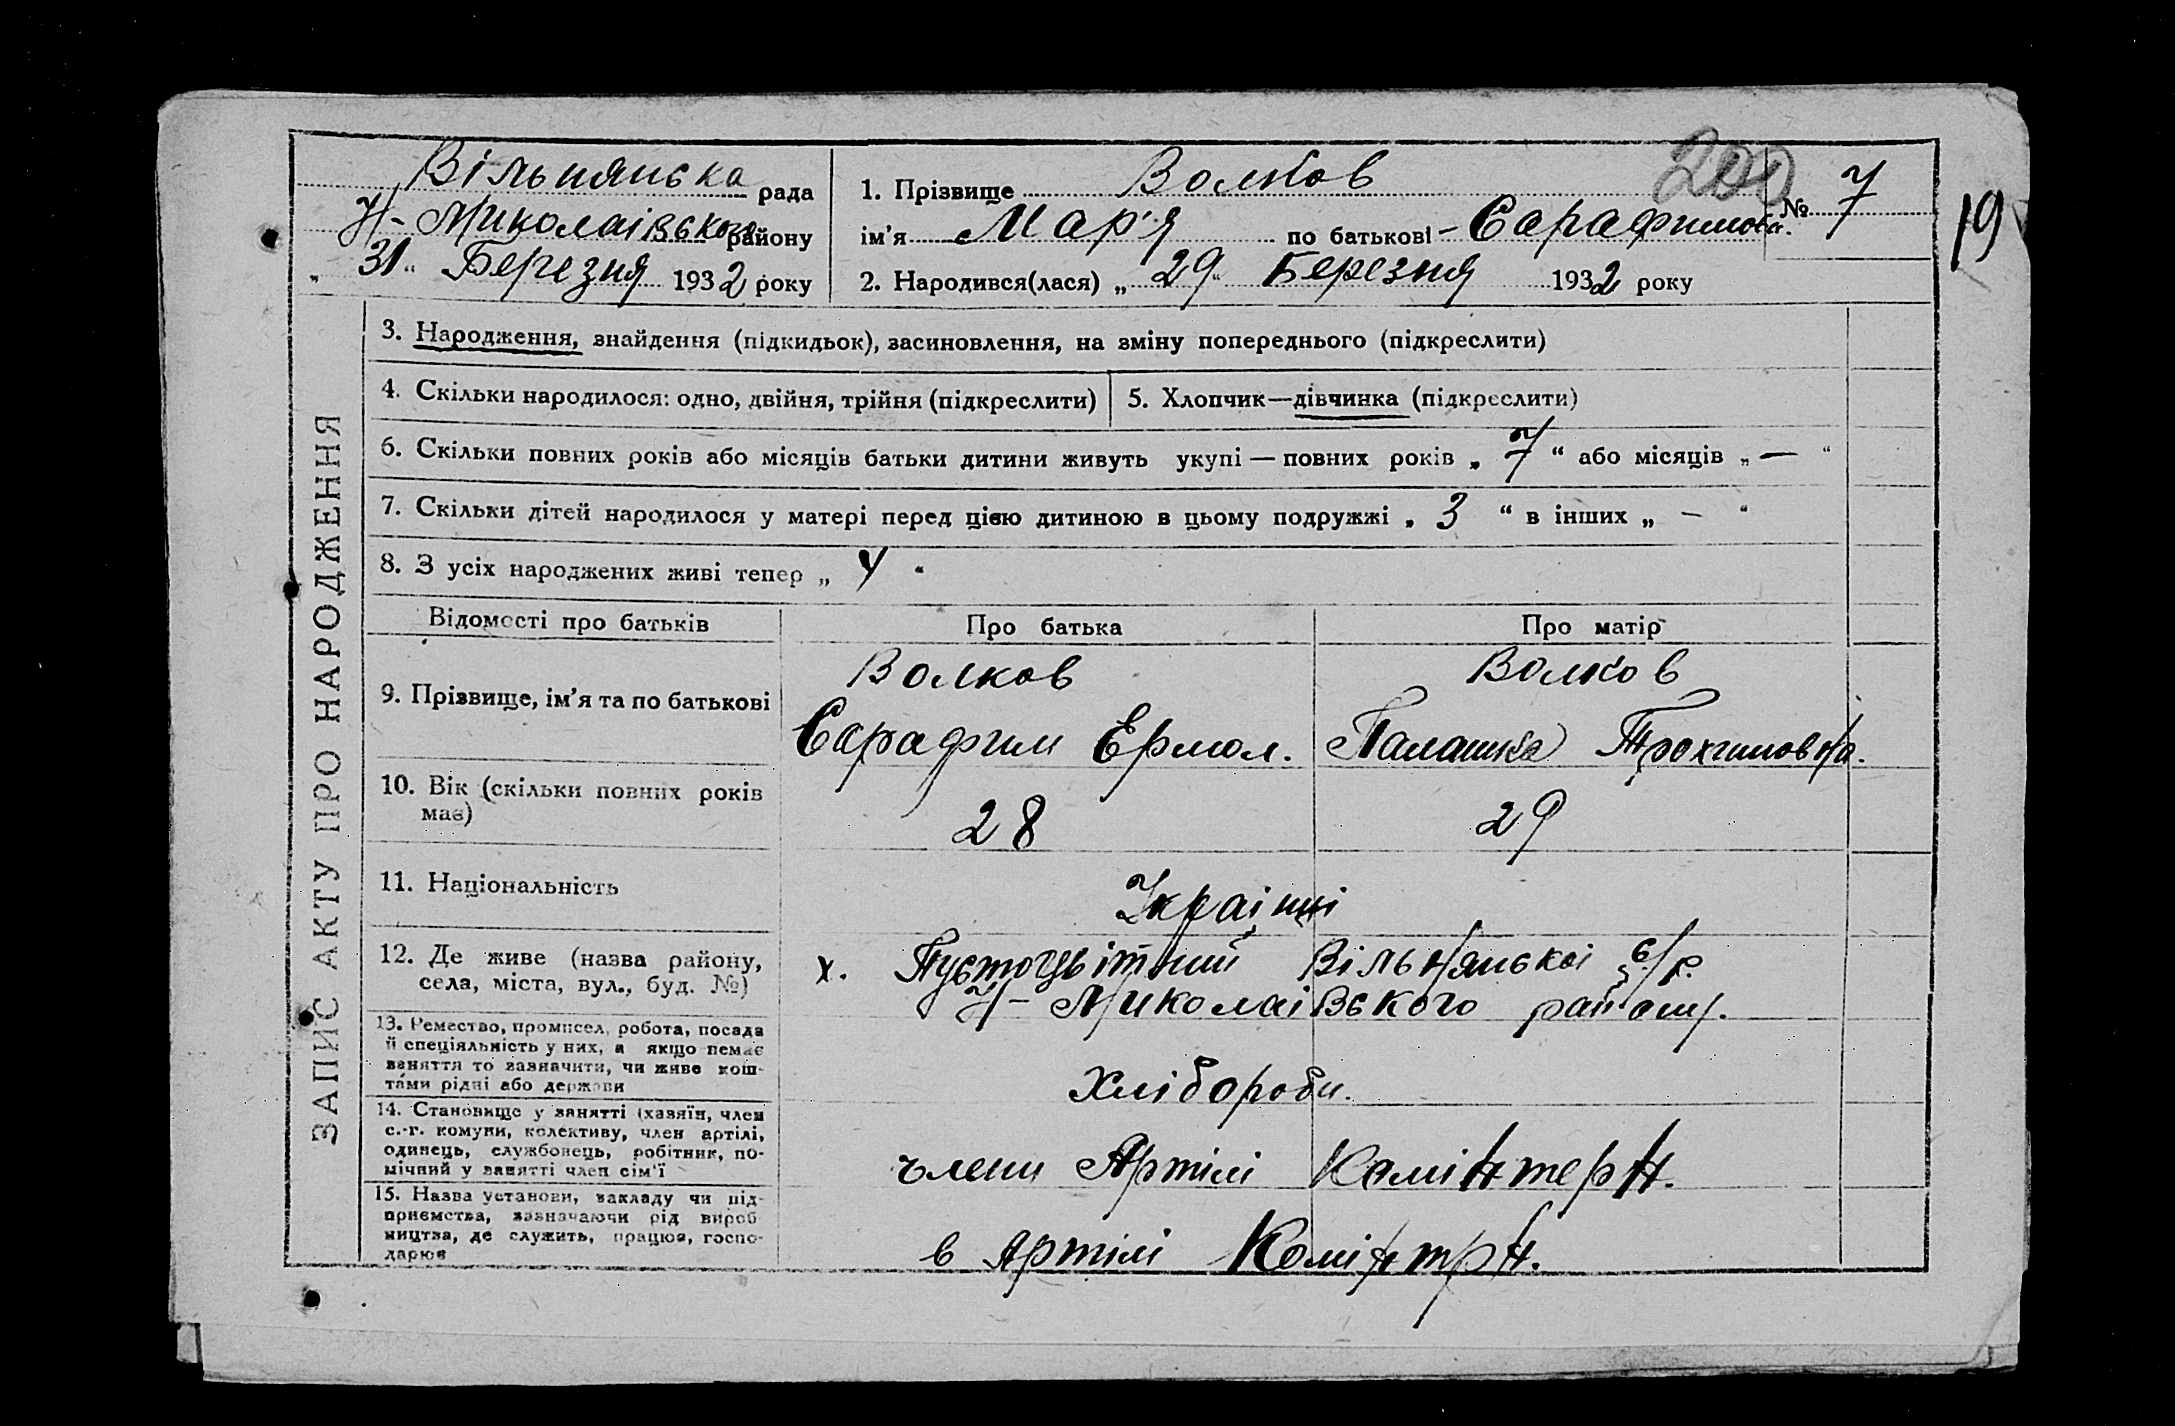 Вільнянська рада
Н-Миколаівського району
„ 31 “ Березня 1932 року
1. Прізвище Волков
200
№ 7
19
ім’я Мар'я по батькові - Сарафимов.
2. Народився(лася) „ 29 “ Березня 1932 року
ЗАПИС АКТУ ПРО НАРОДЖЕННЯ
3. Народження, знайдення (підкидьок), засиновлення, на зміну попереднього (підкреслити)
4. Скільки народилося: одно, двійня, трійня (підкреслити)
5. Хлопчик—дівчинка (підкреслити)
6. Скільки повних років або місяців батьки дитини живуть укупі — повних років „ 7 “ або місяців „ — “
7. Скільки дітей народилося у матері перед цією дитиною в цьому подружжі „ 3 “ в інших „ - “
8. З усіх народжених живі тепер „ 4 “
Відомості про батьків
Про батька
Про матір
9. Прізвище, ім’я та по батькові
Волков
Сарафим Ермол.
Волков
Палашка Трохимовна.
10. Вік (скільки повних років
має)
28
29
11. Національність
Украінці
12. Де живе (назва району,
села, міста, вул., буд. №)
х. Пустоцвітний Вільнянськоі с/р.
Н-Миколаівського району.
13. Ремество, промисел, робота, посада
й спеціяльність у них, а якщо немає
заняття то зазначити, чи живе кош-
тами рідні або держави
Хлібороби.
14. Становище у занятті (хазяїн, член
с.-г. комуни, колективу, член артілі,
одинець, службовець, робітник, по-
мічний у занятті член сім’ї
члени Артілі Комінтерн.
15. Назва установи, закладу чи під-
приємства, зазначаючи рід вироб-
ництва, де служить, працює, госпо-
дарює
в Артілі Комінтрн.